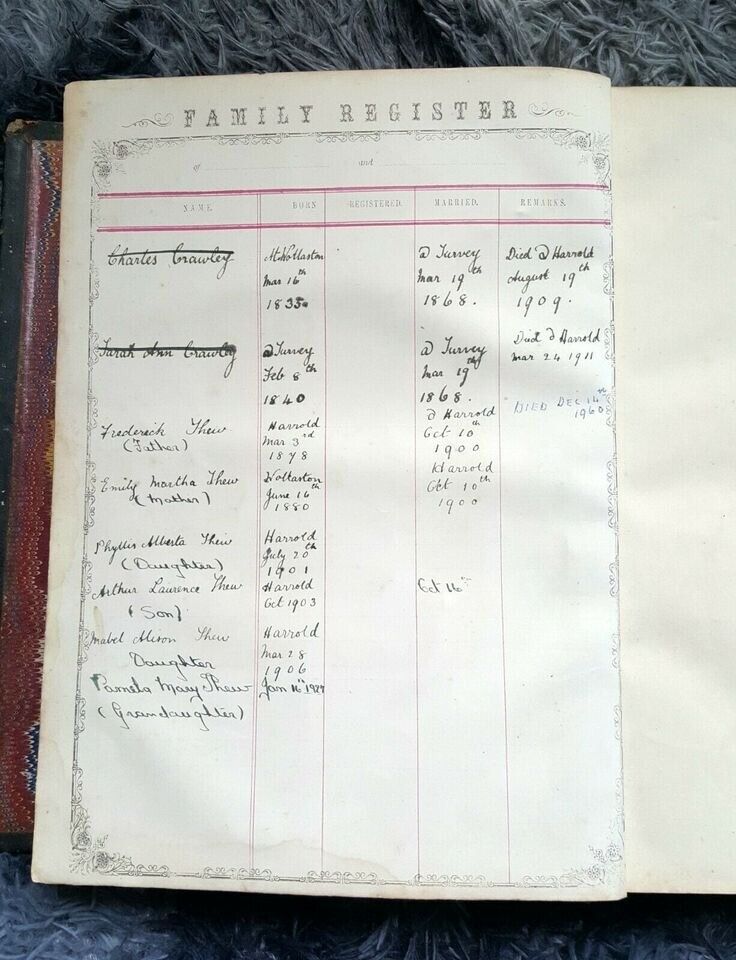 FAMILY REGISTER
of and
NAME. BORN REGISTERED. MARRIED. REMARKS.
Charles Crawley At Wollaston @ Turvey Died @ Harrold
Mar 16th Mar 19th August 19th
1835 1868. 1909.
Sarah Ann Crawley @ Turvey @ Turvey Died @ Harrold
Feb 8th Mar 19th Mar 24 1911
1840 1868.
Frederick Thew Harrold @ Harrold DIED DEC 14th
(Father) Mar 3rd Oct 10th 1960
1878 1900
Emily Martha Thew Wollaston Harrold
(Mother) June 16th Oct 10th
1880 1900
Phyllis Alberta Thew Harrold
(Daughter) July 20th
1901
Arthur Laurence Thew Harrold Oct 16th
(Son) Oct 1903
Mabel Alison Thew Harrold
Daughter Mar 28
1906
Pamela Mary Thew Jan 16th
(Grandaughter)